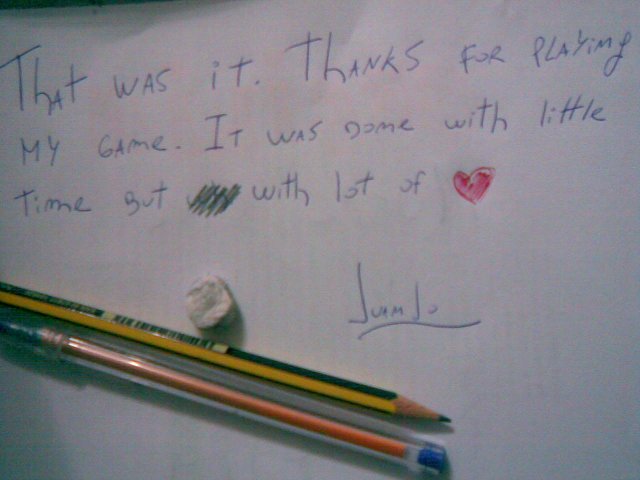 That was it. Thanks for playing
my game. It was done with little
time but with lot of ♥
JuanJo